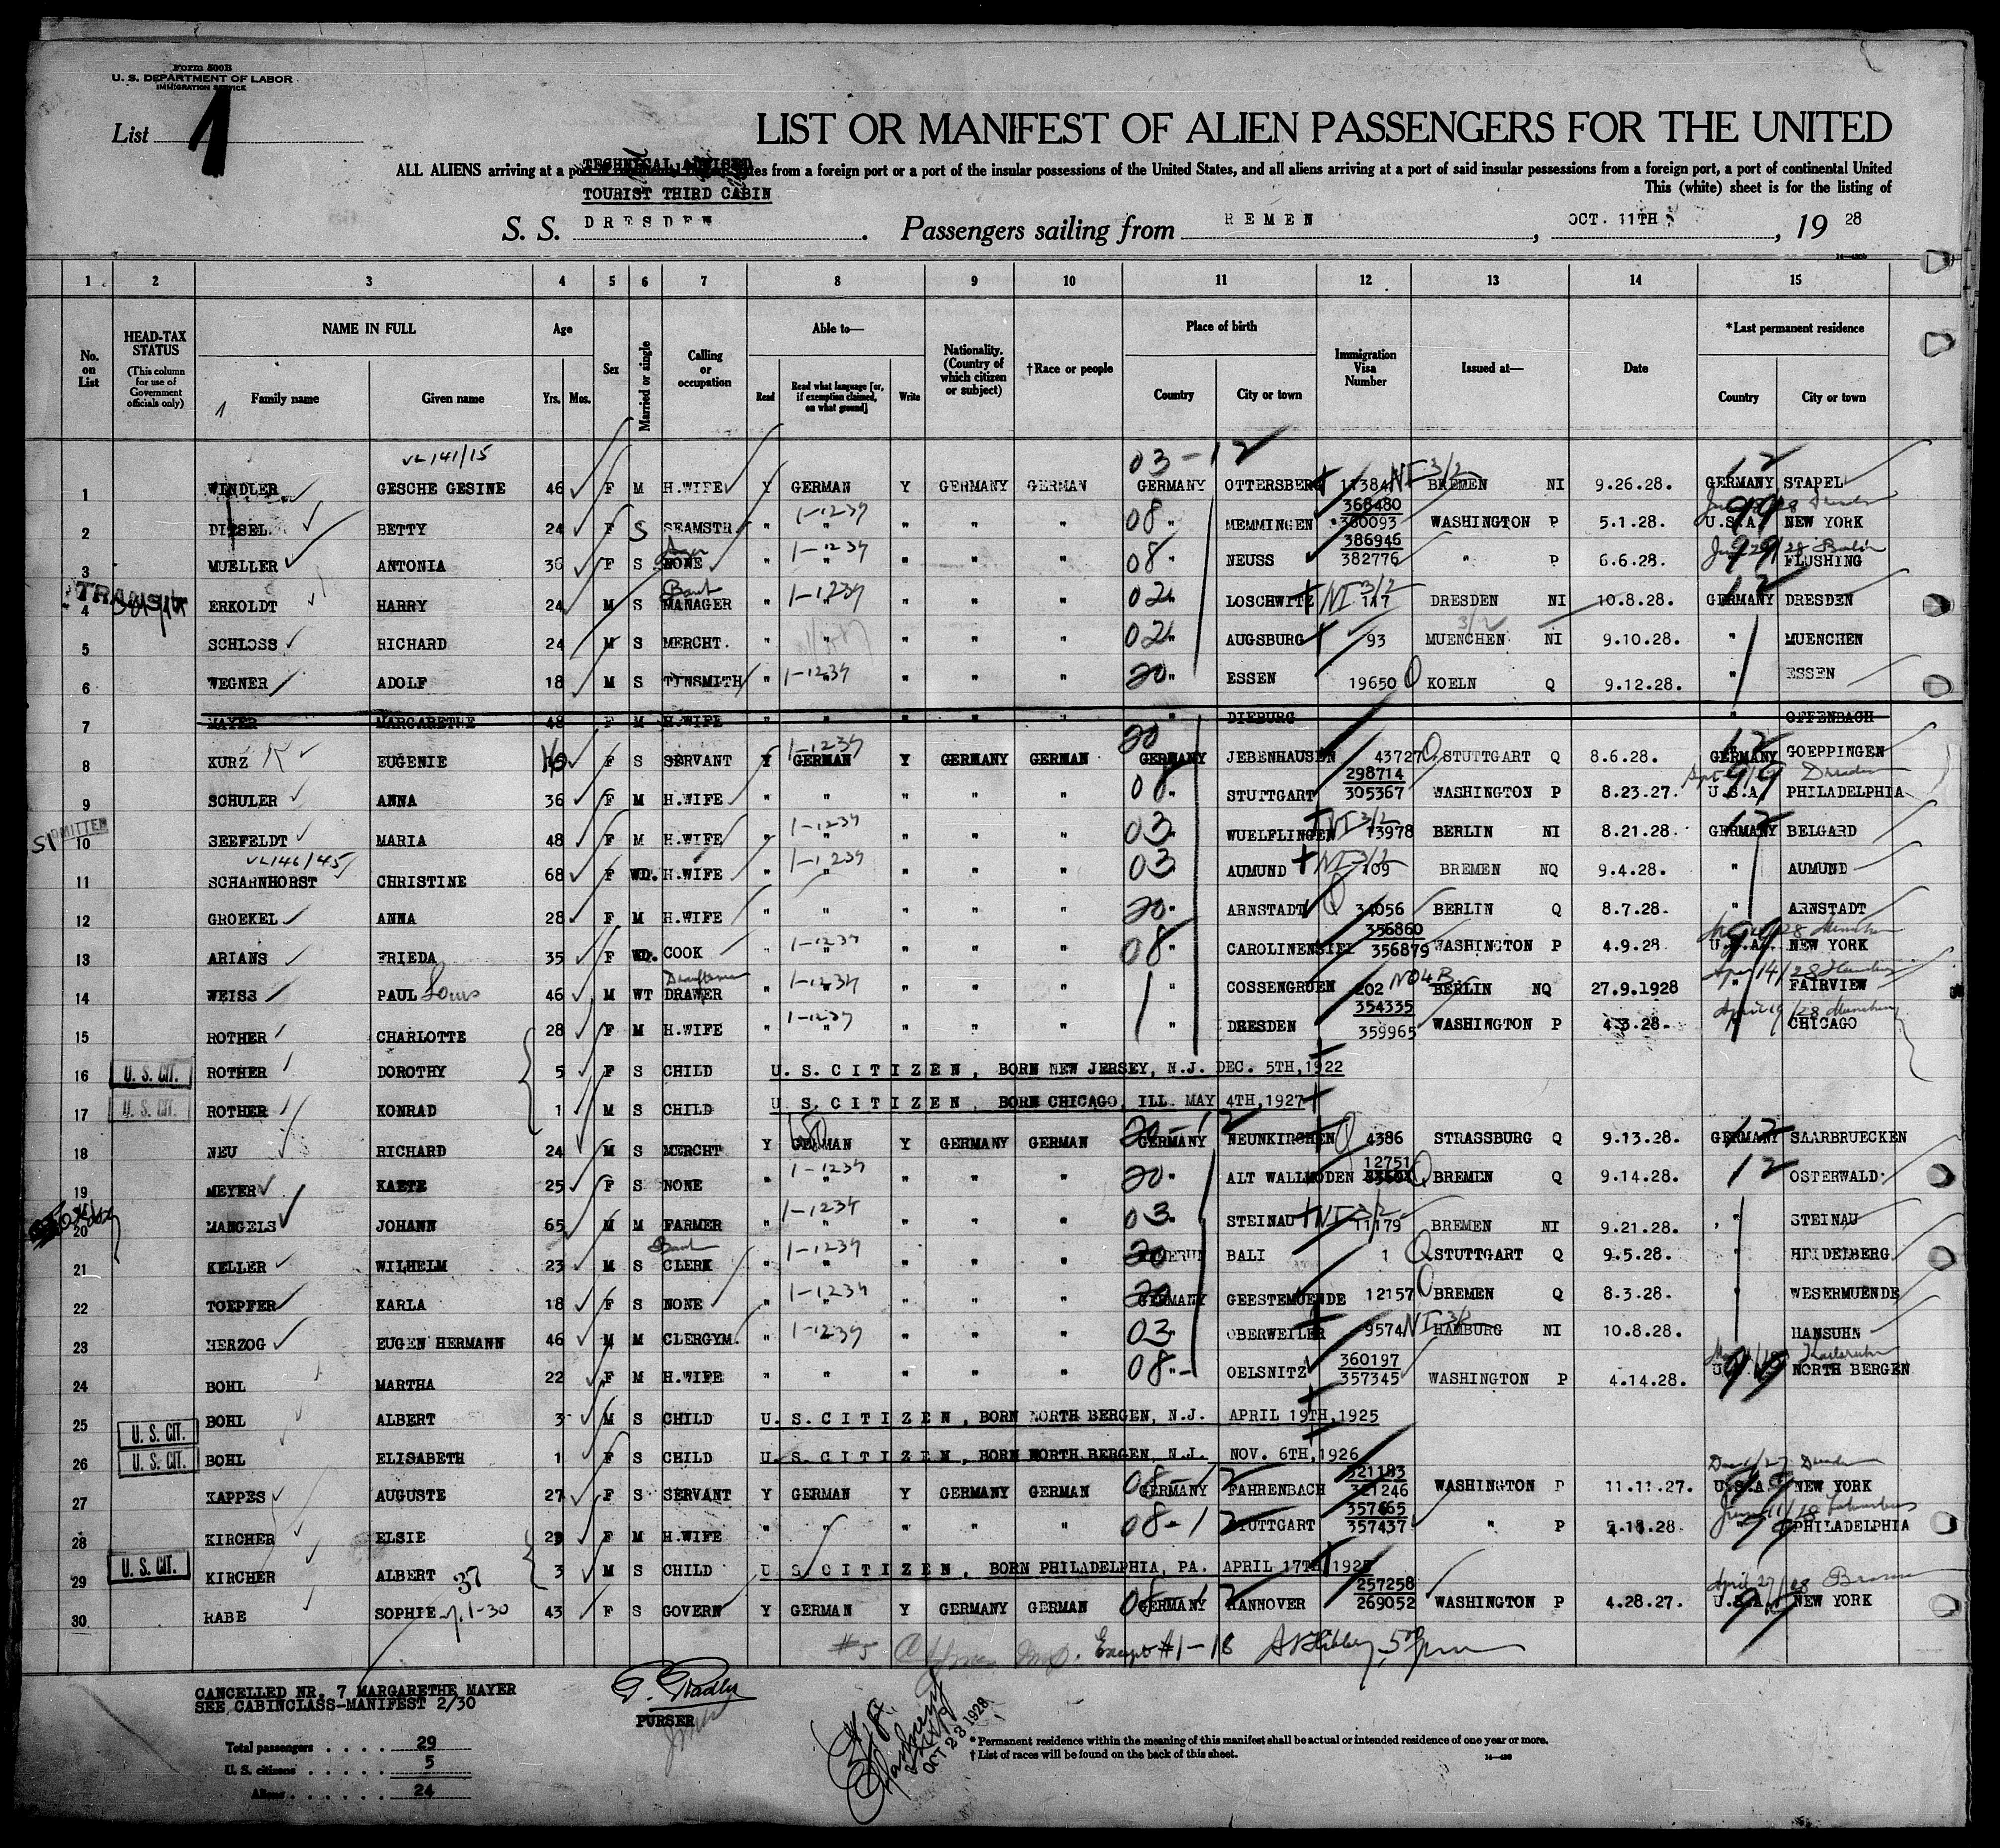 Form 500B
U. S. DEPARTMENT OF LABOR
IMMIGRATION SERVICE
List 1
LIST OR MANIFEST OF ALIEN PASSENGERS FOR THE UNITED
ALL ALIENS arriving at a port of continental United States from a foreign port or a port of the insular possessions of the United States, and all aliens arriving at a port of said insular possessions from a foreign port, a port of continental United
TOURIST THIRD CABIN
This (white) sheet is for the listing of
S. S. DRESDEN. Passengers sailing from REMEN, OCT. 11TH, 19 28
1 2 3 4 5 6 7 8 9 10 11 12 13 14 15
No. on List
HEAD-TAX STATUS (This column for use of Government officials only)
NAME IN FULL Family name Given name
Age Yrs. Mos.
Sex
Married or single
Calling or occupation
Able to— Read Read what language [or, if exemption claimed, on what ground] Write
Nationality. (Country of which citizen or subject)
†Race or people
Place of birth Country City or town
Immigration Visa Number
Issued at—
Date
*Last permanent residence Country City or town
VL 141/15 03-12
1 WINDLER GESCHE GESINE 46 F M H.WIFE Y GERMAN Y GERMANY GERMAN GERMANY OTTERSBERG NI 3/2 BREMEN NI 9.26.28. GERMANY STAPEL
2 DIESEL BETTY 24 F S SEAMSTR. " " " " " 08 " MEMMINGEN 368480 360093 WASHINGTON P 5.1.28. U.S.A. NEW YORK
3 MUELLER ANTONIA 36 F S NONE " " " " " 08 " NEUSS 386946 382776 " P 6.6.28. FLUSHING
TRANSIT
4 ERKOLDT HARRY 24 M S Bank MANAGER " " " " " 02 " LOSCHWITZ NI 3/2 117 DRESDEN NI 10.8.28. GERMANY DRESDEN
5 SCHLOSS RICHARD 24 M S MERCHT. " " " " " 02 " AUGSBURG 93 MUENCHEN NI 9.10.28. " MUENCHEN
6 WEGNER ADOLF 18 M S TYNSMITH " " " " " 20 " ESSEN 19650 Q KOELN Q 9.12.28. " ESSEN
7 MAYER MARGARETHE 48 F M H.WIFE " " " " " " DIEBURG " OFFENBACH
8 KURZ EUGENIE F S SERVANT Y GERMAN Y GERMANY GERMAN 20 GERMANY JEBENHAUSEN 43727 Q STUTTGART Q 8.6.28. GERMANY GOEPPINGEN
9 SCHULER ANNA 36 F M H.WIFE " " " " " 08 " STUTTGART 298714 305367 WASHINGTON P 8.23.27. U.S.A. PHILADELPHIA
10 SEEFELDT MARIA 48 F M H.WIFE " " " " " 03 " WUELFLINGEN NI 3/2 13978 BERLIN NI 8.21.28. GERMANY BELGARD
VL 146/45
11 SCHARNHORST CHRISTINE 68 F WD. H.WIFE " " " " " 03 " AUMUND NI 3/2 109 BREMEN NQ 9.4.28. " AUMUND
12 GROEKEL ANNA 28 F M H.WIFE " " " " " 20 " ARNSTADT Q 34056 BERLIN Q 8.7.28. " ARNSTADT
13 ARIANS FRIEDA 35 F WD. COOK " " " " " 08 " CAROLINENSIEL 356860 356879 WASHINGTON P 4.9.28 U.S.A. NEW YORK
14 WEISS PAUL Louis 46 M WT Draftsman DRAWER " " " " " " COSSENGRUEN 202 NO4B BERLIN NQ 27.9.1928 " FAIRVIEW
15 ROTHER CHARLOTTE 28 F M H.WIFE " " " " " " DRESDEN 354335 359965 WASHINGTON P 4.3.28. " CHICAGO
16 U. S. CIT. ROTHER DOROTHY 5 F S CHILD U. S. CITIZEN, BORN NEW JERSEY, N.J. DEC. 5TH, 1922
17 U. S. CIT. ROTHER KONRAD 1 M S CHILD U. S. CITIZEN, BORN CHICAGO, ILL. MAY 4TH, 1927
18 NEU RICHARD 24 M S MERCHT Y GERMAN Y GERMANY GERMAN GERMANY NEUNKIRCHEN Q 4386 STRASSBURG Q 9.13.28. GERMANY SAARBRUECKEN
19 MEYER KAETE 25 F S NONE " " " " " 20 " ALT WALLMODEN 12751 Q BREMEN Q 9.14.28. 12 OSTERWALD
20 MANGELS JOHANN 65 M M FARMER " " " " " 03 " STEINAU NI 3/2 11179 BREMEN NI 9.21.28. " STEINAU
21 KELLER WILHELM 23 M S Bank CLERK " " " " " 20 BALI 1 Q STUTTGART Q 9.5.28. " HEIDELBERG
22 TOEPFER KARLA 18 F S NONE " " " " " 20 GERMANY GEESTEMUENDE 12157 Q BREMEN Q 8.3.28. " WESERMUENDE
23 HERZOG EUGEN HERMANN 46 M M CLERGYM. " " " " " 03 " OBERWEILER 9574 NI 3/2 HAMBURG NI 10.8.28. HANSUHN
24 BOHL MARTHA 22 F M H.WIFE " " " " " 08 " OELSNITZ 360197 357345 WASHINGTON P 4.14.28. NORTH BERGEN
25 U. S. CIT. BOHL ALBERT 3 M S CHILD U. S. CITIZEN, BORN NORTH BERGEN, N.J. APRIL 19TH, 1925
26 U. S. CIT. BOHL ELISABETH 1 F S CHILD U. S. CITIZEN, BORN NORTH BERGEN, N.J. NOV. 6TH, 1926
27 KAPPES AUGUSTE 27 F S SERVANT Y GERMAN Y GERMANY GERMAN GERMANY FAHRENBACH 321183 321246 WASHINGTON P 11.11.27. U.S.A. NEW YORK
28 KIRCHER ELSIE F M H.WIFE " " " " " 08-12 STUTTGART 357437 " P " PHILADELPHIA
29 U. S. CIT. KIRCHER ALBERT 3 M S CHILD U. S. CITIZEN, BORN PHILADELPHIA, PA. APRIL 17TH,
30 RABE SOPHIE 43 F S GOVERN Y GERMAN Y GERMANY GERMAN GERMANY HANNOVER 257258 269052 WASHINGTON P 4.28.27. U.S.A. NEW YORK
Except #1-18
CANCELLED NR. 7 MARGARETHE MAYER
SEE CABINCLASS-MANIFEST 2/30
PURSER
OCT 23 1928
Total passengers . . . . 29
U. S. citizens . . . . . 5
Aliens . . . . . . 24
* Permanent residence within the meaning of this manifest shall be actual or intended residence of one year or more.
† List of races will be found on the back of this sheet.